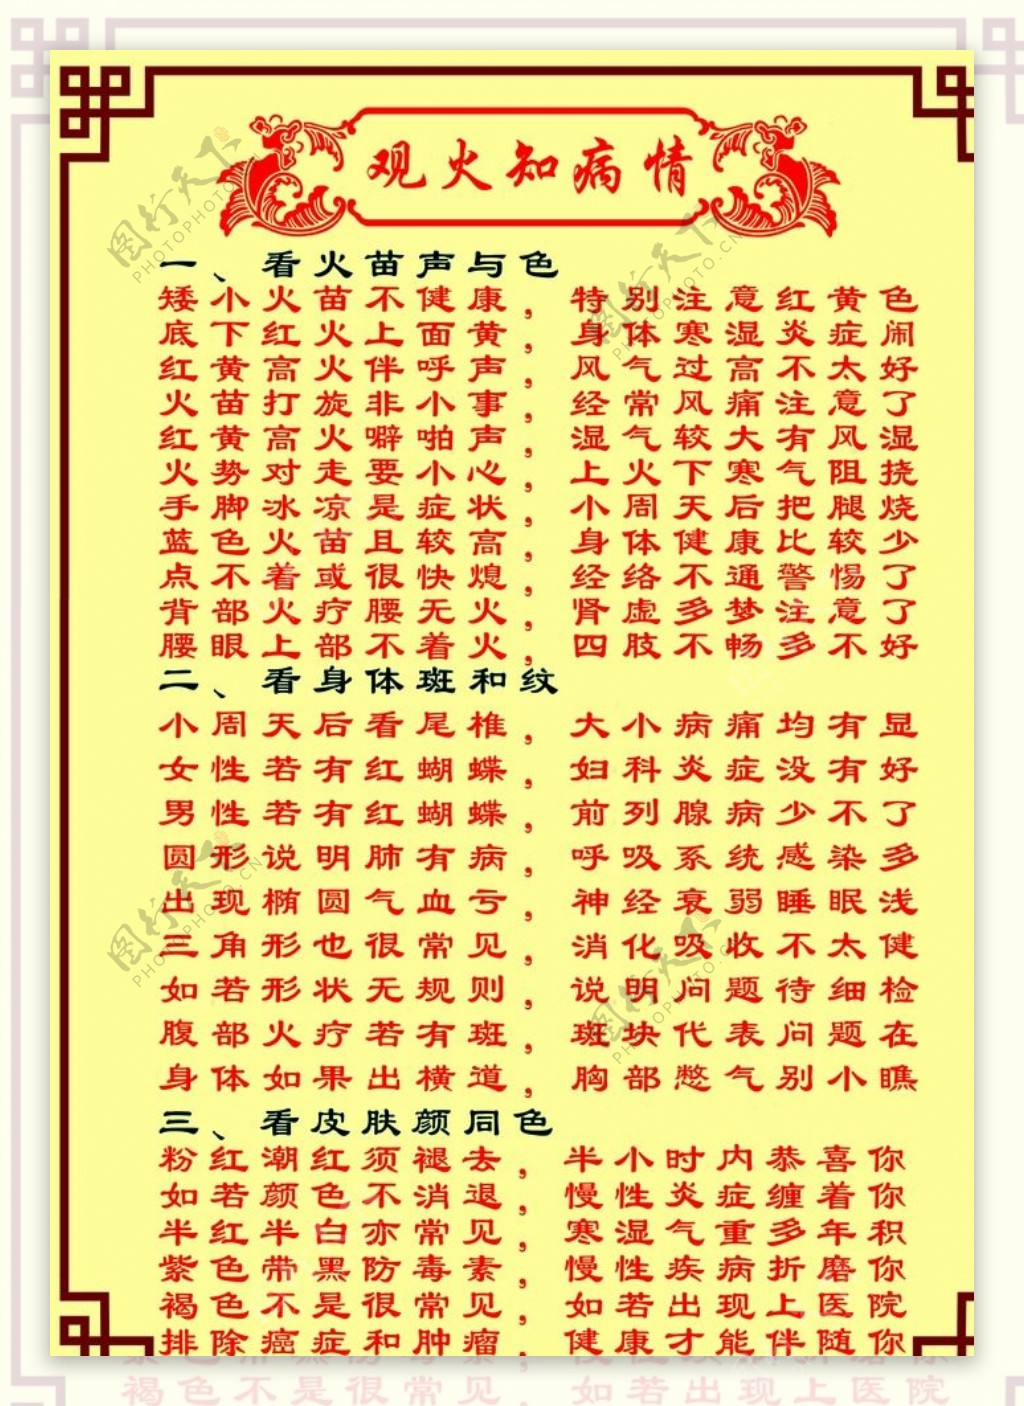 观火知病情
一、看火苗声与色
矮小火苗不健康，特别注意红黄色
底下红火上面黄，身体寒湿炎症闹
红黄高火伴呼声，风气过高不太好
火苗打旋非小事，经常风痛注意了
红黄高火噼啪声，湿气较大有风湿
火势对走要小心，上火下寒气阻挠
手脚冰凉是症状，小周天后把腿烧
蓝色火苗且较高，身体健康比较少
点不着或很快熄，经络不通警惕了
背部火疗腰无火，肾虚多梦注意了
腰眼上部不着火，四肢不畅多不好
二、看身体斑和纹
小周天后看尾椎，大小病痛均有显
女性若有红蝴蝶，妇科炎症没有好
男性若有红蝴蝶，前列腺病少不了
圆形说明肺有病，呼吸系统感染多
出现椭圆气血亏，神经衰弱睡眠浅
三角形也很常见，消化吸收不太健
如若形状无规则，说明问题待细检
腹部火疗若有斑，斑块代表问题在
身体如果出横道，胸部憋气别小瞧
三、看皮肤颜同色
粉红潮红须褪去，半小时内恭喜你
如若颜色不消退，慢性炎症缠着你
半红半白亦常见，寒湿气重多年积
紫色带黑防毒素，慢性疾病折磨你
褐色不是很常见，如若出现上医院
排除癌症和肿瘤，健康才能伴随你
褐色不是很常见，如若出现上医院
图行天下
PHOTOPHOTO.CN
图行天下
PHOTOPHOTO.CN
图行天下
PHOTOPHOTO.CN
图行天下
PHOTOPHOTO.CN